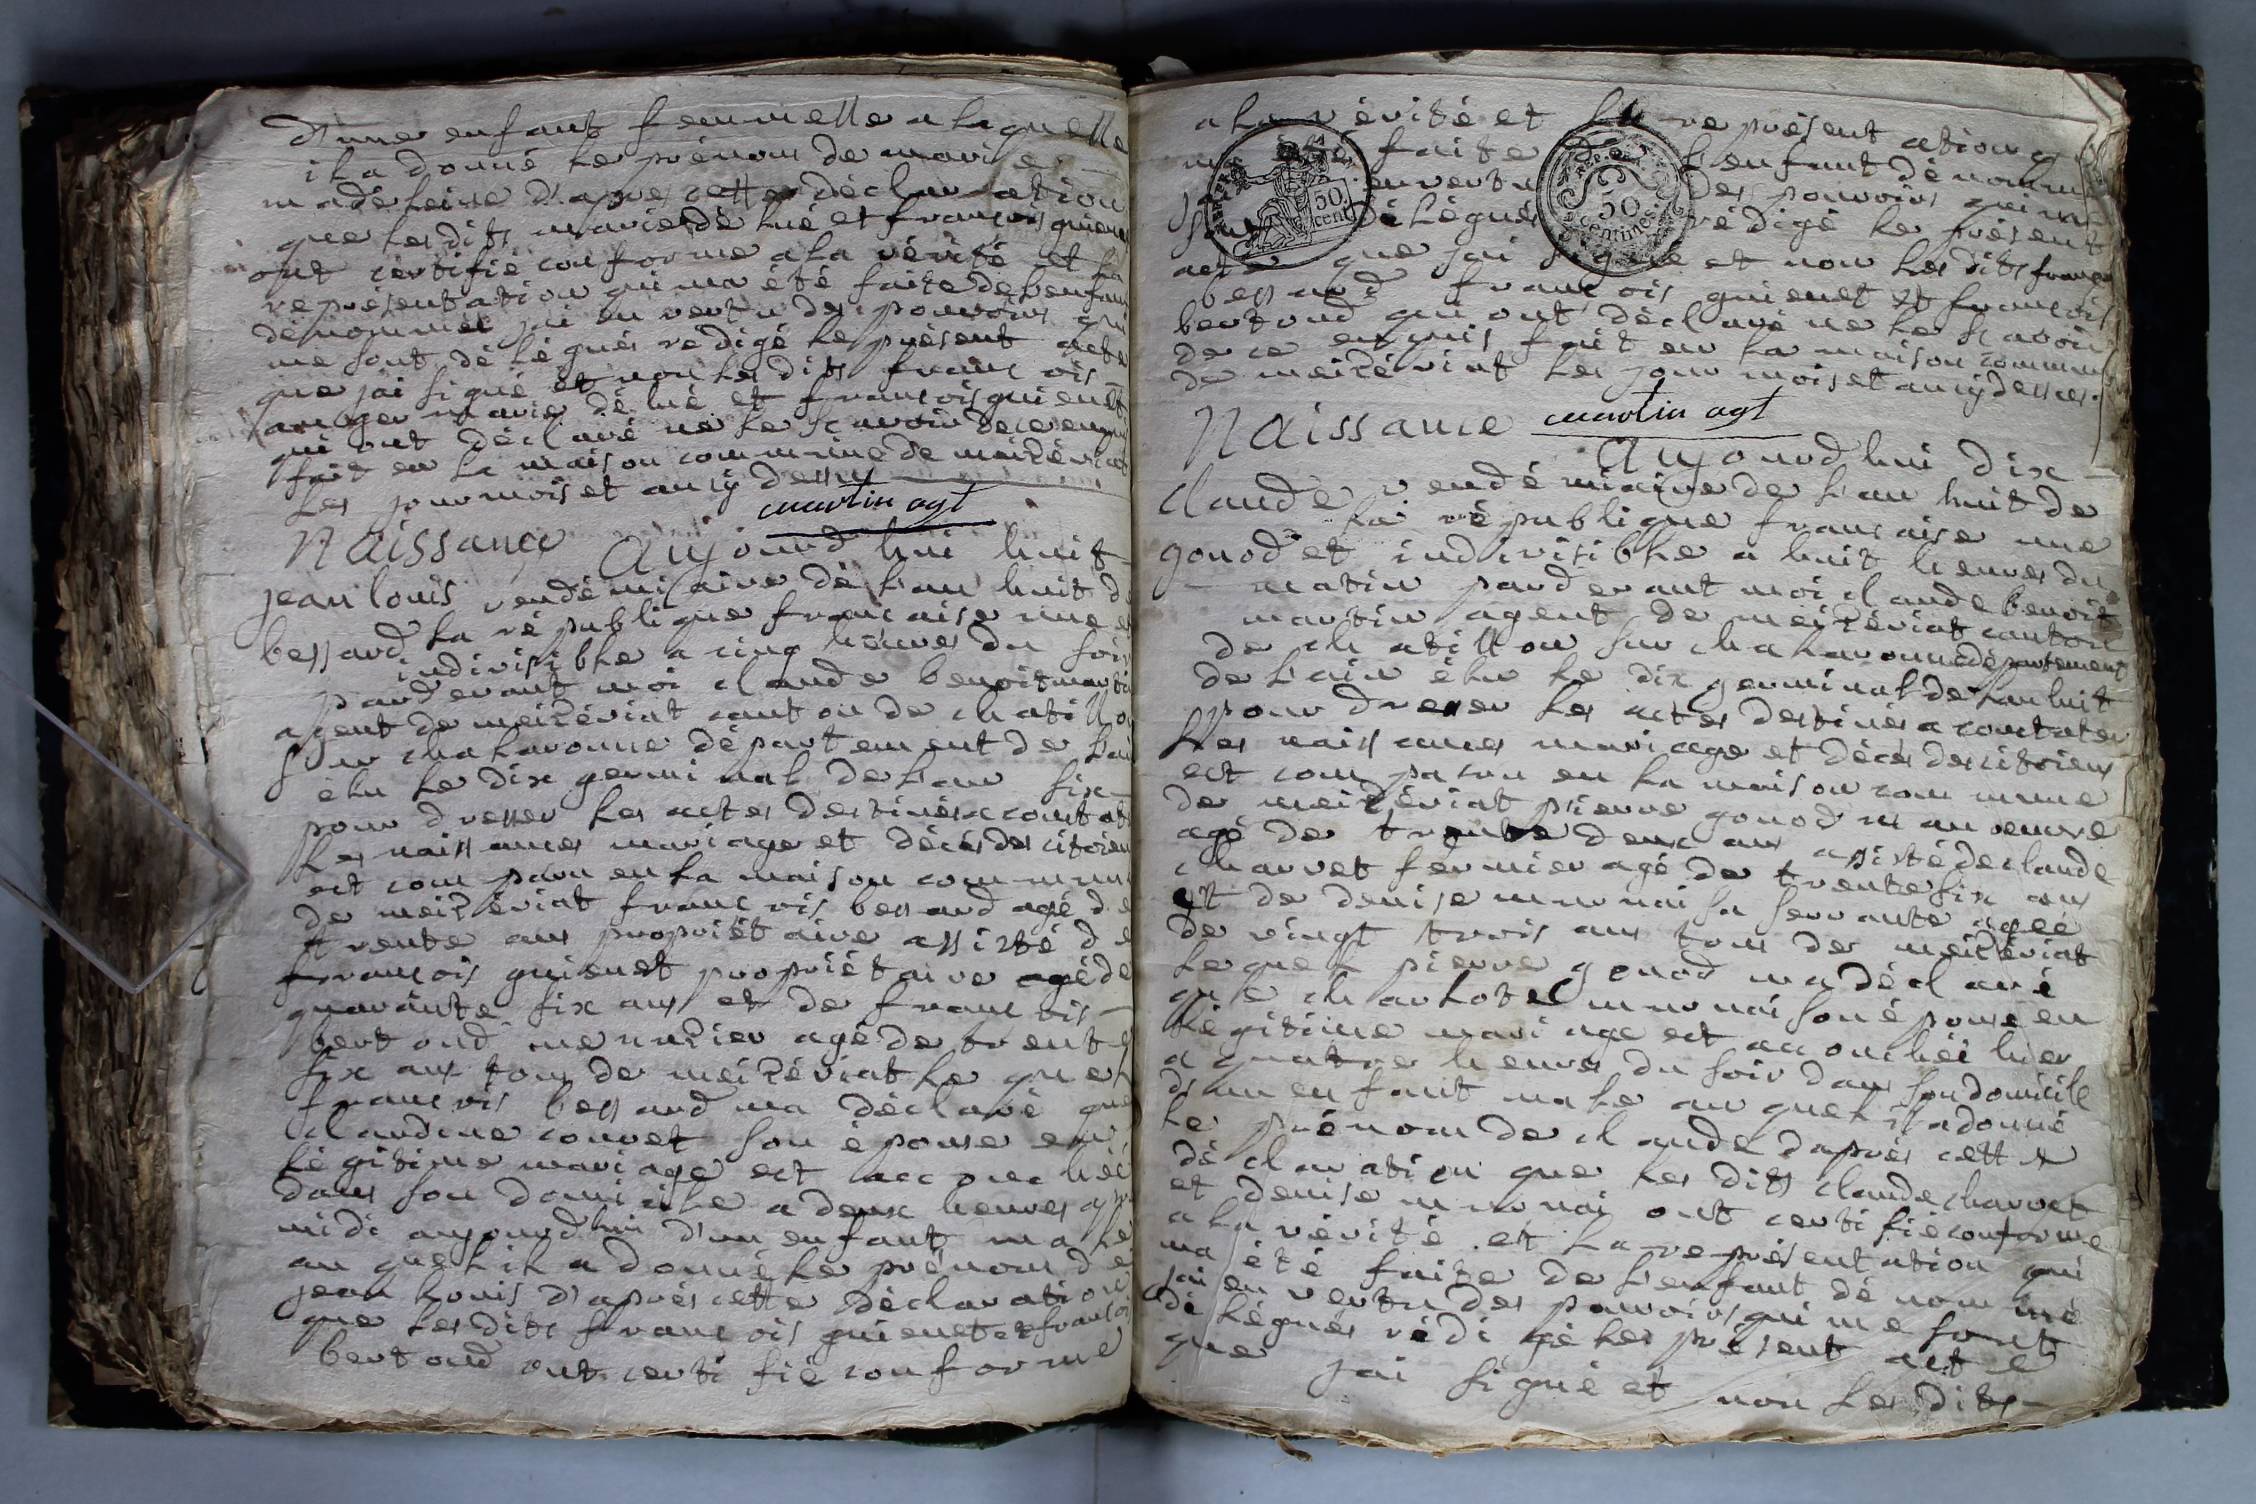 d'une enfant femmelle a laquelle
il a donné le prénom de marie
madeleine d'apres cette déclaration
que les dits marie délué et francois guienet
ont certifié conforme a la vérité et la
représentation qui ma été faite de l'enfant
dénommée jai en vertu des pouvoirs qui
me sont délégués redigé le présent acte
que jai signé et non les dits francois
auger marie délué et francois guienet
qui ont déclaré ne le scavoir de ce enquis
fait en la maison commune de meizériat
les jour mois et an cy dessus
martin agt
Naissance Aujourd'hui huit
jean louis vendémiaire de l'an huit de
bessard la république francaise une et
indivisible a cinq heures du soir
pardevant moi claude benoit martin
agent de meizériat canton de chatillon
sur chalaronne département de l'ain
élu le dix germinal de l'an six
pour dresser les actes destinés a constater
les naissances mariage et décés des citoiens
est comparu en la maison commune
de meizériat francois bessard agé de
trente ans propriétaire assisté de
francois guienet propriétaire agé de
quarante six ans et de francois
bertoud menuzier agé de trente
six ans tous de meizériat lequel
francois bessard ma déclaré que
claudine convet son épouse en
légitime mariage est accouchéé
dans son domicile a deux heures apres
midi aujourd'hui d'un enfant male
au quel il a donné le prénom de
jean louis d'aprés cette déclaration
que les dits francois guienet et francois
bertoud ont certifié conforme
a la vérité et la représentation qui
ma été faite de l'enfant dénommé
jai en vertu des pouvoirs qui me
sont délégués rédigé le présent
acte que jai signé et non les dits francois
bessard francois guienet et francois
bertoud qui ont déclaré ne le scavoir
de ce enquis fait en la maison commune
de meizériat les jour mois et an cy dessus.
REP. FRA.
50 cent.
50 centimes
Naissance martin agt
Aujourd'hui dix
claude vendémiaire de l'an huit de
la république francaise une
gonod et indivisible a huit heures du
matin pardevant moi claude benoit
martin agent de meizériat canton
de chatillon sur chalaronne département
de l'ain élu le dix germinal de l'an huit
pour dresser les actes destinés a constater
les naissances mariage et décés des citoiens
est comparu en la maison commune
de meizériat pierre gonod manoeuvre
agé de trente deux ans assisté de claude
charvet fermier agé de trente six ans
et de denise murnai sa servante agéé
de vingt trois ans tous de meizériat
lequel pierre gonod ma déclaré
que charlotel murnai son épouse en
légitime mariage est accouchéé hier
a quatre heures du soir dans son domicile
d'un enfant male au quel il a donné
le prénom de claude d'aprés cette
déclaration que les dits claude charvet
et denise murnai ont certifié conforme
a la vérité et la représentation qui
ma été faite de l'enfant dénommé
jai en vertu des pouvoirs qui me sont
délégués rédigé le présent acte
que jai signé et non les dits